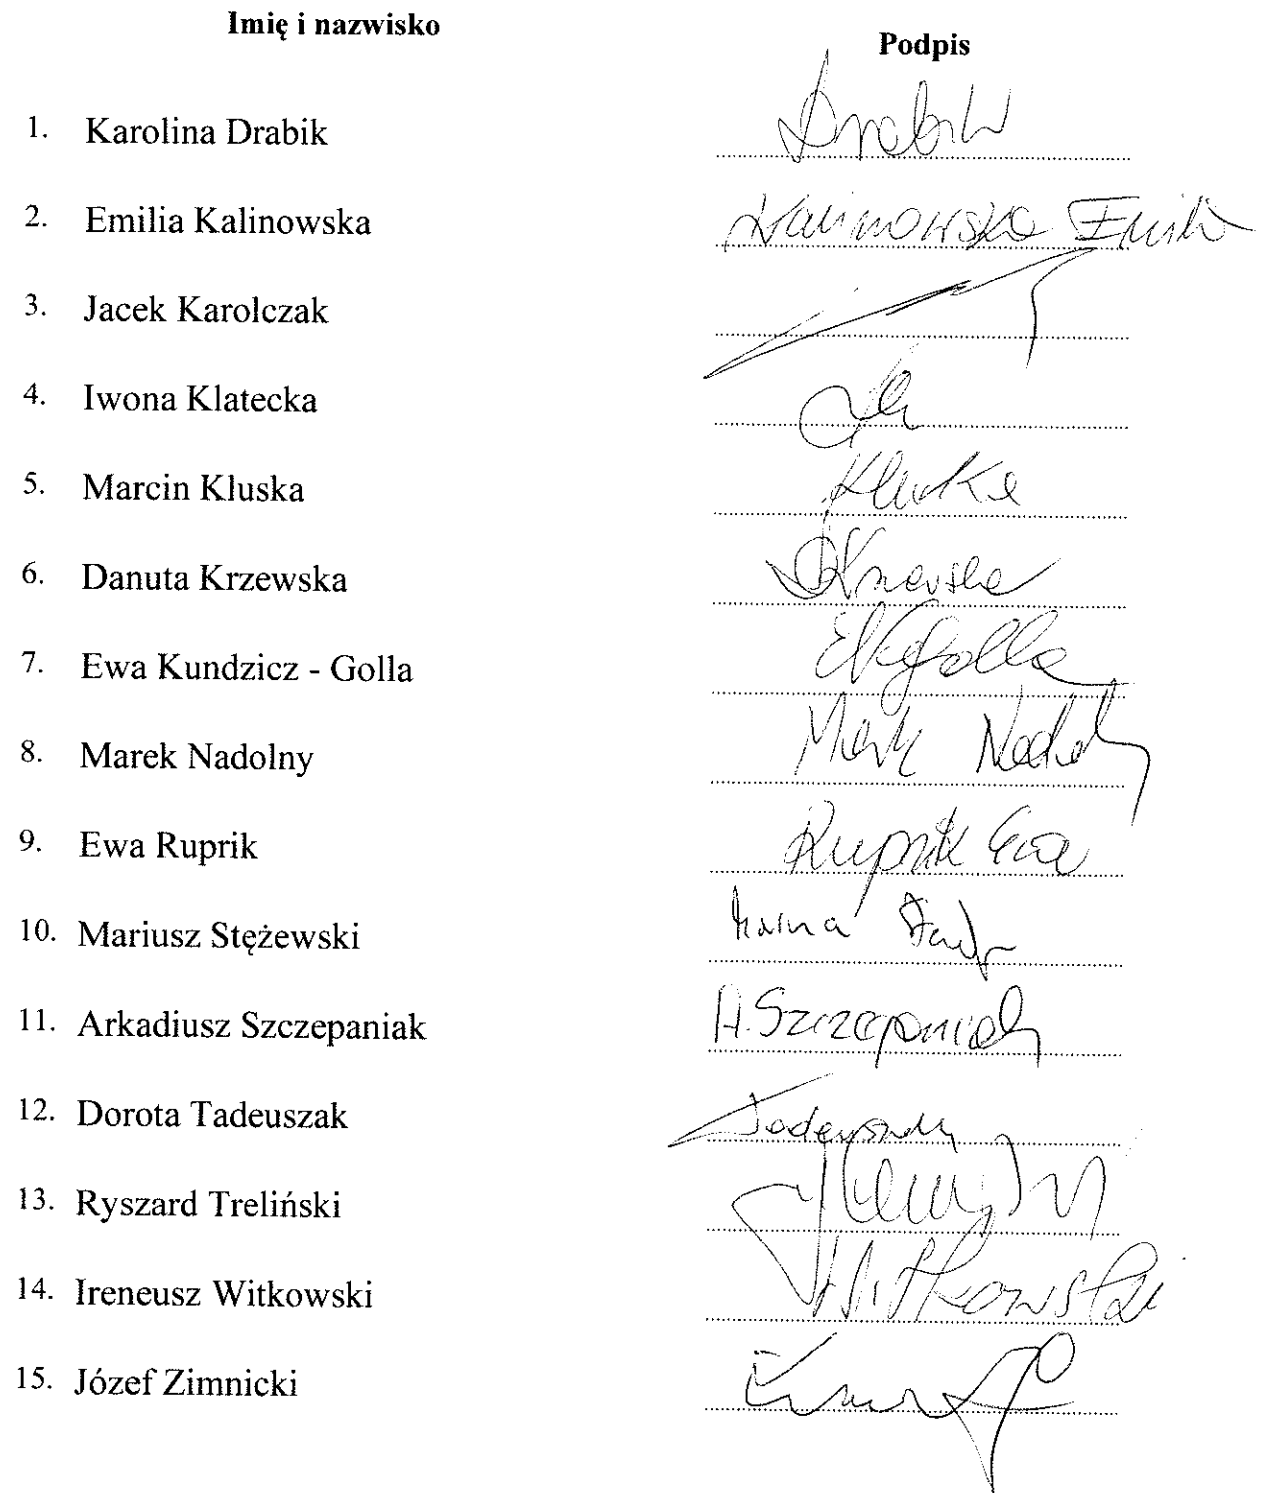 Imię i nazwisko
Podpis
1. Karolina Drabik Drabik
2. Emilia Kalinowska Kalinowska Emilia
3. Jacek Karolczak
4. Iwona Klatecka
5. Marcin Kluska Kluska
6. Danuta Krzewska DKrzewska
7. Ewa Kundzicz - Golla EKGolla
8. Marek Nadolny Marek
9. Ewa Ruprik Ruprik Ewa
10. Mariusz Stężewski
11. Arkadiusz Szczepaniak A. Szczepaniak
12. Dorota Tadeuszak Tadeuszak
13. Ryszard Treliński
14. Ireneusz Witkowski Witkowski
15. Józef Zimnicki